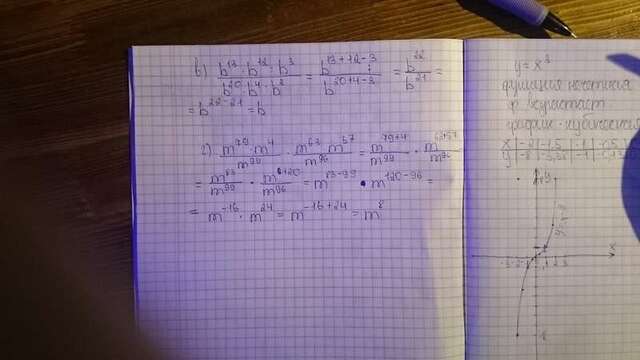 в) b¹³ · b¹² · b³ / b²⁰ · b⁴ · b³ = b¹³⁺¹²⁻³ / b²⁰⁺⁴⁻³ = b²² / b²¹ =
= b²²⁻²¹ = b
г) m⁷⁹ · m⁴ / m⁹⁹ · m⁶³ · m⁵⁷ / m⁹⁶ = m⁷⁹⁺⁴ / m⁹⁹ · m⁶³⁺⁵⁷ / m⁹⁶
= m⁸³ / m⁹⁹ · m¹²⁰ / m⁹⁶ = m⁸³⁻⁹⁹ · m¹²⁰⁻⁹⁶ =
= m⁻¹⁶ · m²⁴ = m⁻¹⁶⁺²⁴ = m⁸
y = x³
функция нечетная
ф. возрастает
график - кубическая
x -2 -1,5 -1 -0,5
y -8 -1
y
x
-3 -2 -1 1 2 3